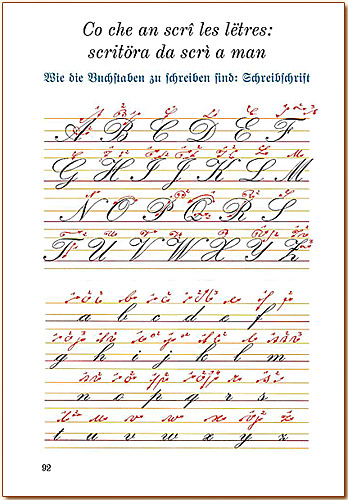 Co che an scrî les lëtres:
scritöra da scrì a man
Wie die Buchstaben zu schreiben sind: Schreibschrift
A B C D E F
G H I J K L M
N O P Q R S
T U V W X Y Z
a b c d e f
g h i j k l m
n o p q r s
t u v w x y z
92